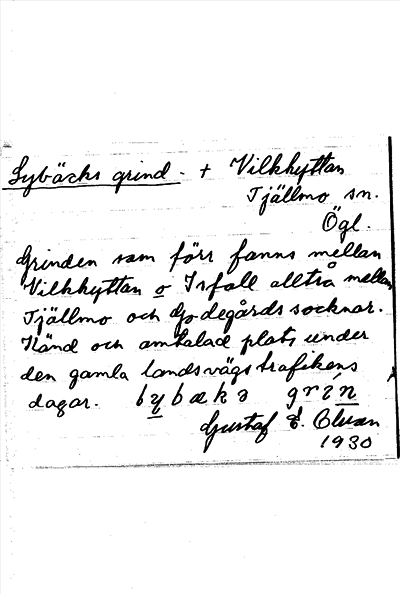 Sybäcks grind. + Vilkhyttan
Tjällmo sn.
Ögl.
Grinden som förr fanns mellan
Vilkhyttan o Isfall alltså mellan
Tjällmo och Godegårds socknar.
Känd och omtalad plats under
den gamla landsvägstrafikens
dagar.
Gustaf E.
1930